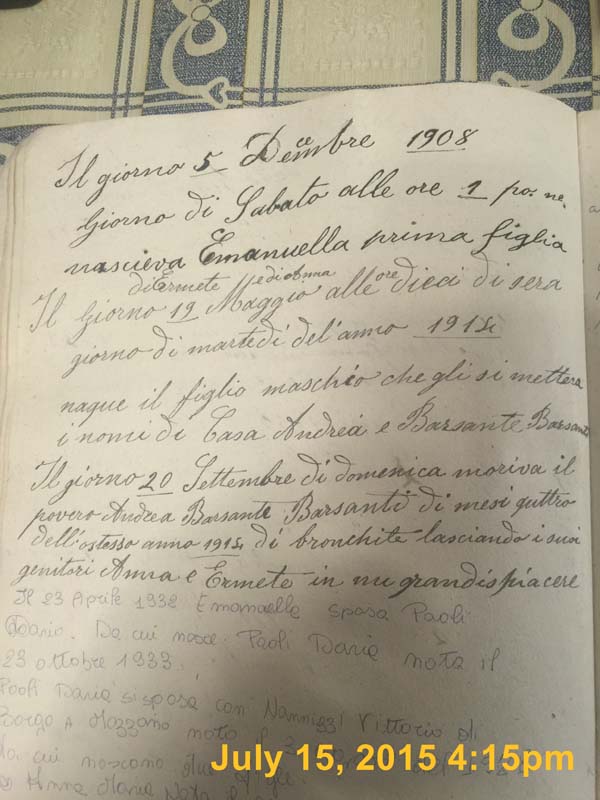 Il giorno 5 Decembre 1908
Giorno di Sabato alle ore 1 po. ne.
nascieva Emanuella prima figlia
di Ermete e di Anna
Il Giorno 19 Maggio alle ore dieci di sera
giorno di martedí del'anno 1914
naque il figlio maschio che gli si mettera
i nomi di Casa Andrea e Barsante Barsanti
Il giorno 20 Settembre di domenica moriva il
povero Andrea Barsante Barsanti di mesi quttro
dell'ostesso anno 1914 di bronchite lasciando i suoi
genitori Anna e Ermete in nu grandispiacere
Il 23 Aprile 1932 Emanuella sposa Paoli
Dario. Da cui nasce Paoli Daria nata il
23 ottobre 1933.
Paoli Daria si sposa con Nannizzi Vittorio di
Borgo a Mozzano nato il
da cui nascono due figlie
Anna Maria Nata il
July 15, 2015 4:15pm